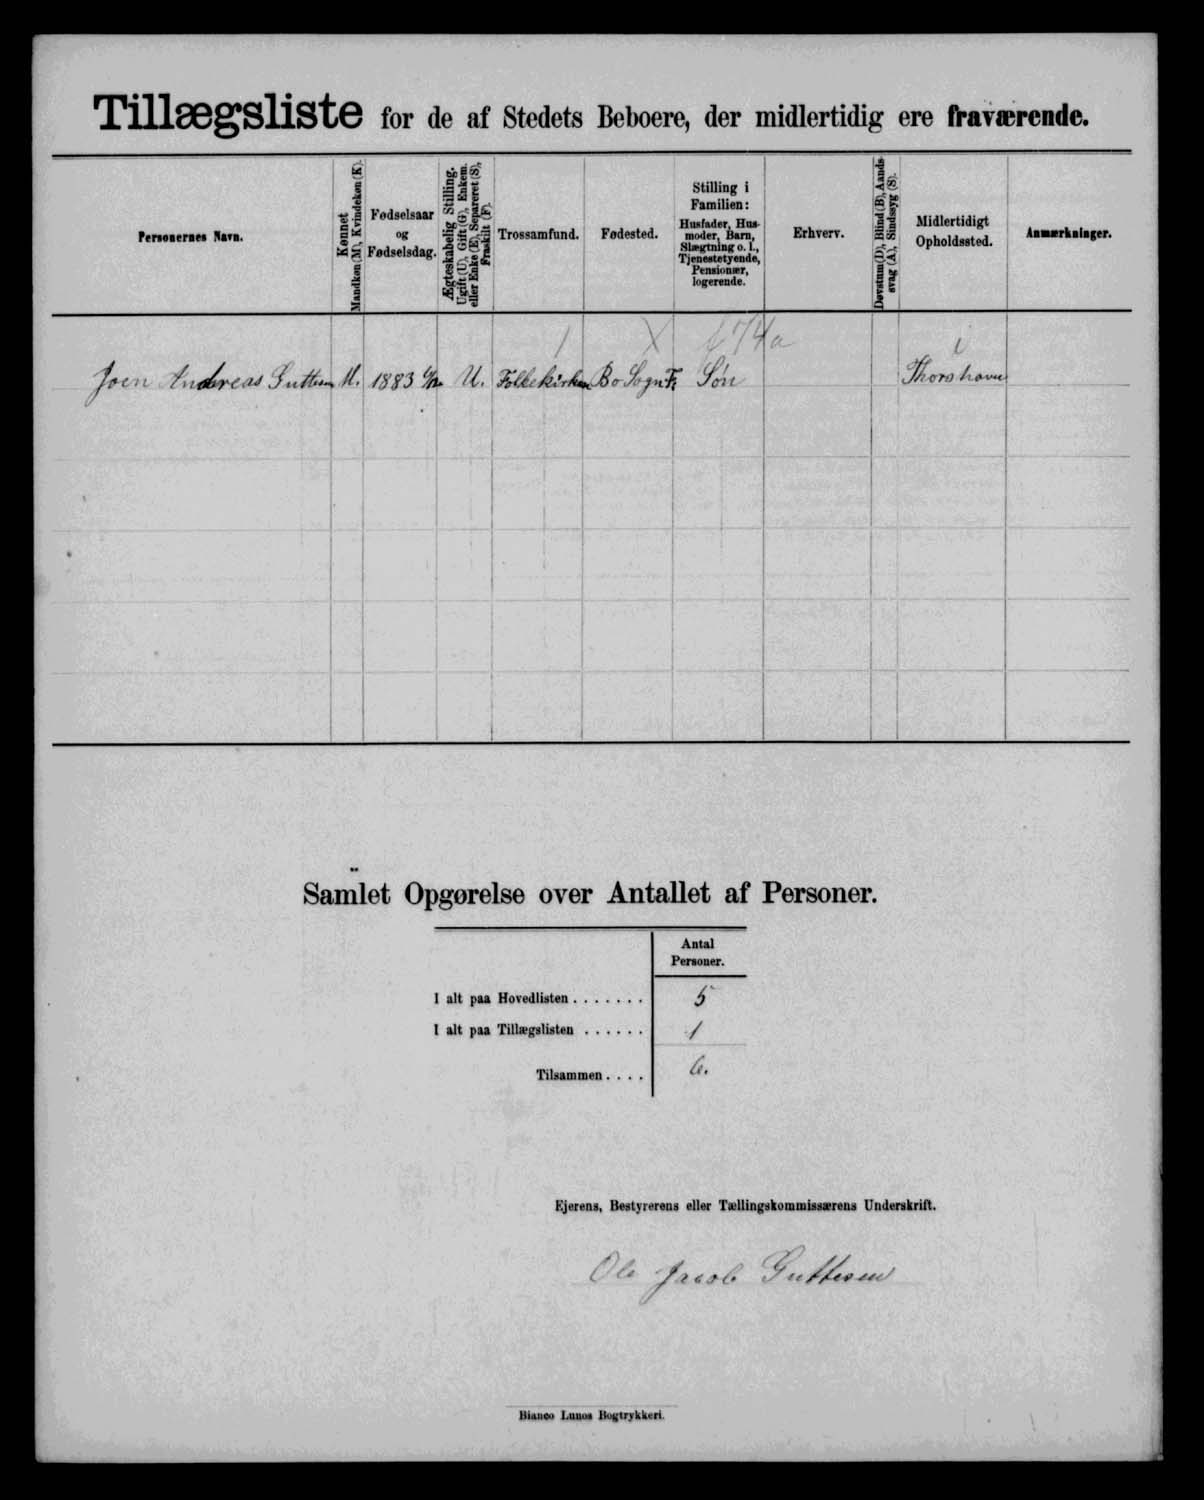 Tillægsliste for de af Stedets Beboere, der midlertidig ere fraværende.
Personernes Navn.
Kønnet
Mandkøn (M), Kvindekøn (K).
Fødselsaar
og
Fødselsdag.
Ægteskabelig Stilling.
Ugift (U), Gift (G), Enkem.
eller Enke (E), Separeret (S),
Fraskilt (F).
Trossamfund.
Fødested.
Stilling i
Familien:
Husfader, Hus-
moder, Barn,
Slægtning o. l.,
Tjenestetyende,
Pensionær,
logerende.
Erhverv.
Døvstum (D), Blind (B), Aands-
svag (A), Sindssyg (S).
Midlertidigt
Opholdssted.
Anmærkninger.
Joen Andreas Guttesen M. 1883 U. Folkekirken Bo Sogn F. Søn Thorshavn
Samlet Opgørelse over Antallet af Personer.
Antal
Personer.
I alt paa Hovedlisten . . . . . . . 5
I alt paa Tillægslisten . . . . . . 1
Tilsammen . . . . 6.
Ejerens, Bestyrerens eller Tællingskommissærens Underskrift.
Ole Jacob Guttesen
Bianco Lunos Bogtrykkeri.